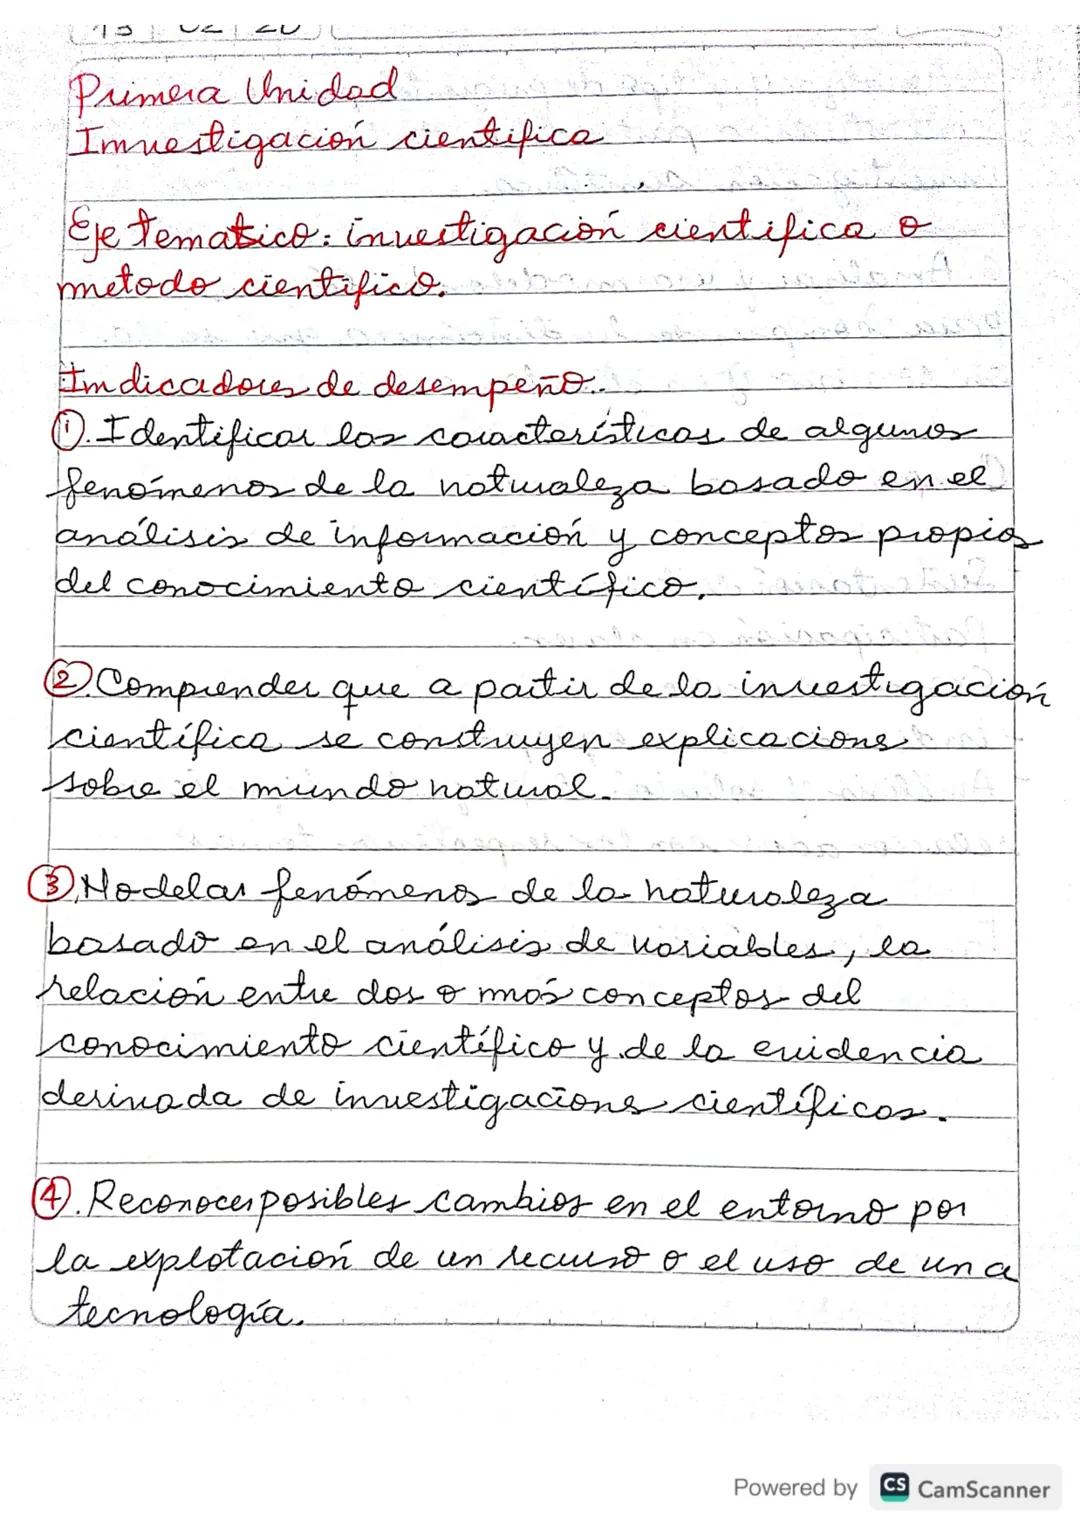 Primera Unidad
Investigación cientifica
Eje tematico: investigación cientifica o
metodo cientifico.
Indicadores de desempeño.
①. Identificar las características de algunos
fenómenos de la naturaleza basado en el
análisis de información y conceptos propios
del conocimiento científico.
②. Comprender que a partir de la investigación
científica se construyen explicaciones
sobre el mundo natural.
③. Modelar fenómenos de la naturaleza
basado en el análisis de variables, la
relación entre dos o más conceptos del
conocimiento científico y de la evidencia
derivada de investigaciones científicas.
④. Reconocer posibles cambios en el entorno por
la explotación de un recurso o el uso de una
tecnología.
Powered by CS CamScanner